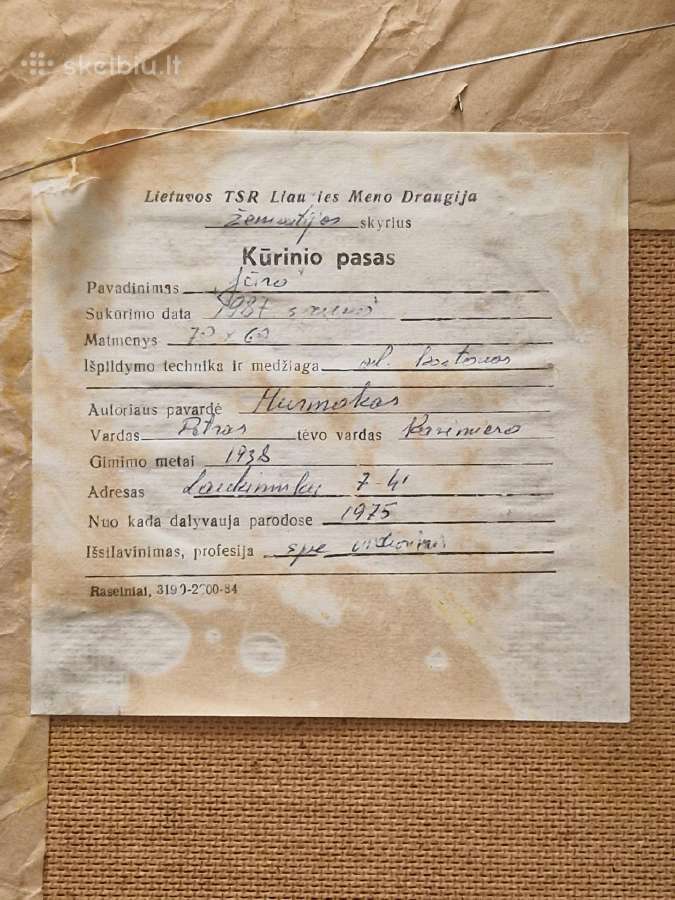 skelbiu.lt
Lietuvos TSR Liau ies Meno Draugija
Žemaitijos skyrius
Kūrinio pasas
Pavadinimas „Jūra"
Sukūrimo data 1987
Matmenys 70 x 60
Išpildymo technika ir medžiaga al. kartonas
Autoriaus pavardė
Vardas Petras tėvo vardas Kazimiero
Gimimo metai 1938
Adresas 7-41
Nuo kada dalyvauja parodose 1975
Išsilavinimas, profesija spec vidurinis
Raseiniai, 319 -2 00-84